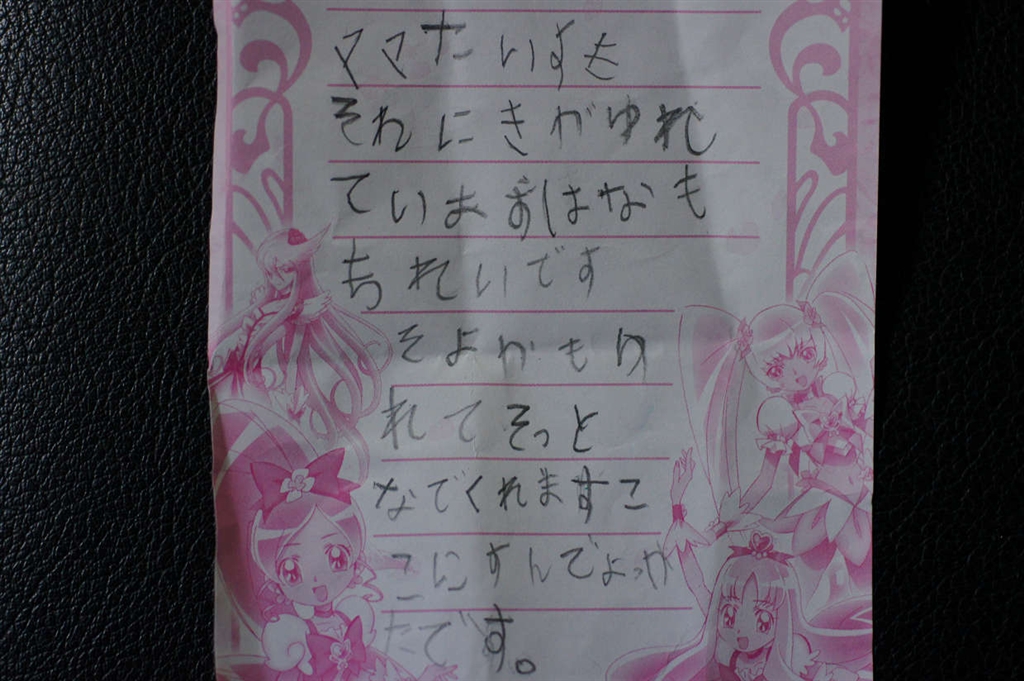 ママたいすも
それにきがゆれ
ていよずはなも
ちれいです
そよかもゆ
れてそっと
なでくれますこ
こにすんでよっか
たてです。